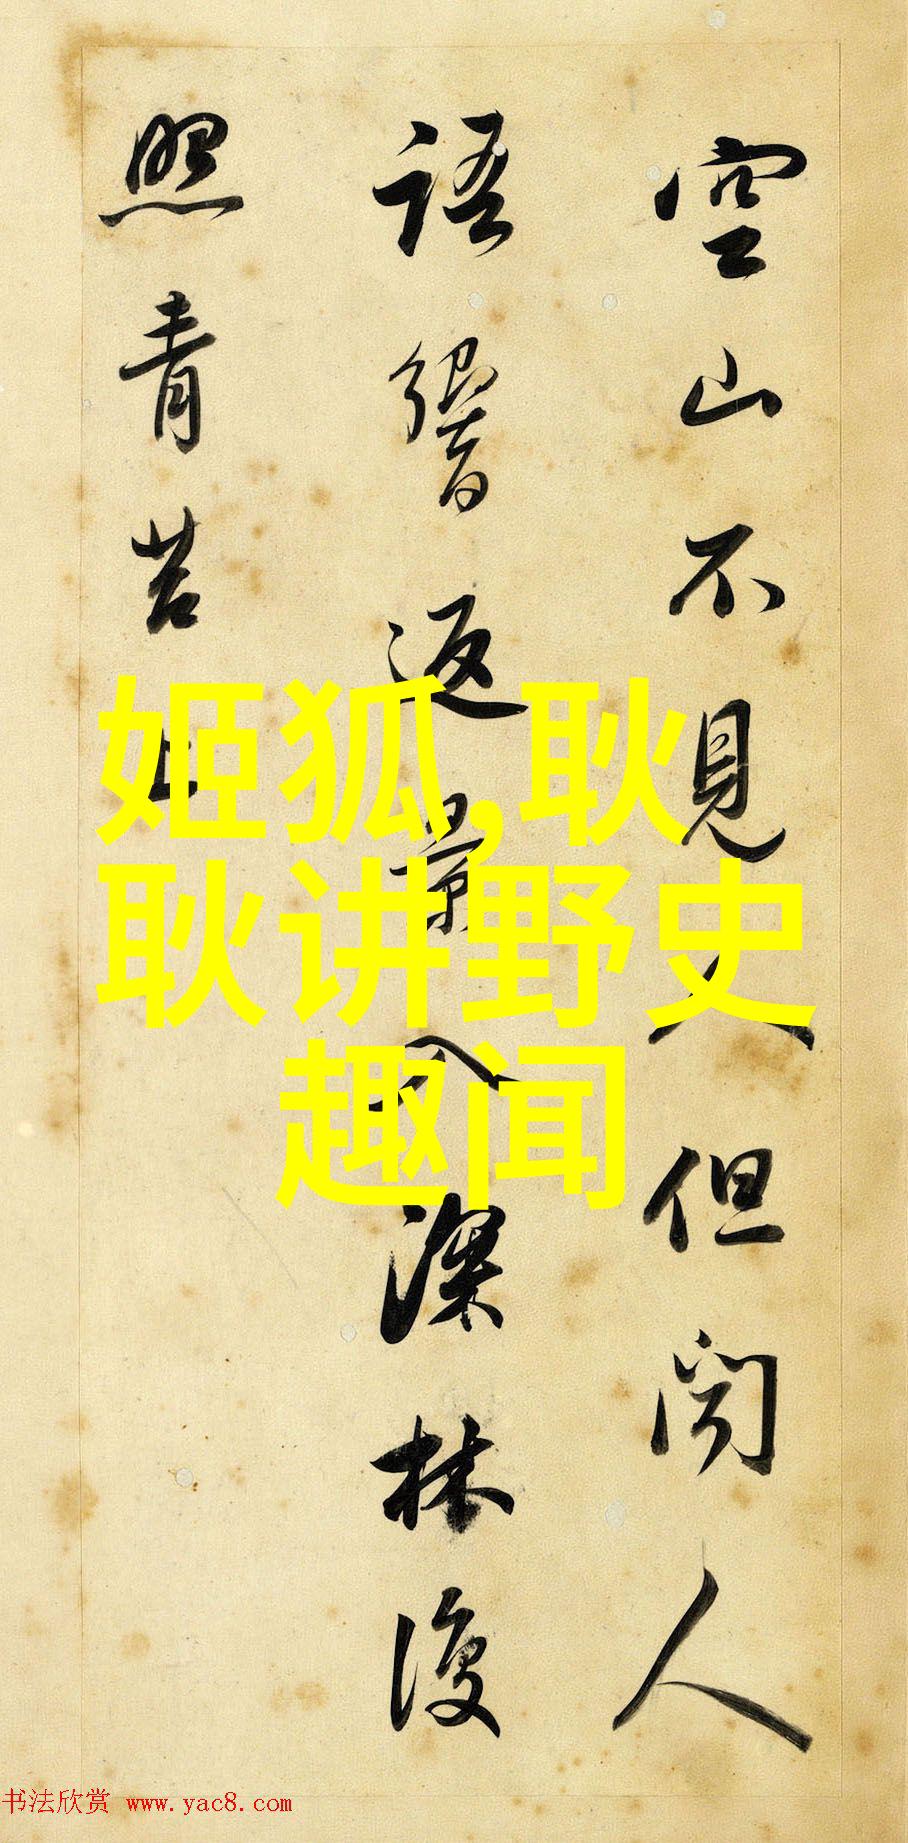 空山不見人但闻人
語響返景入深林復
照青苔上
姬狐,耿
耿讲野史
趣闻
书法欣赏 www.yac8.com